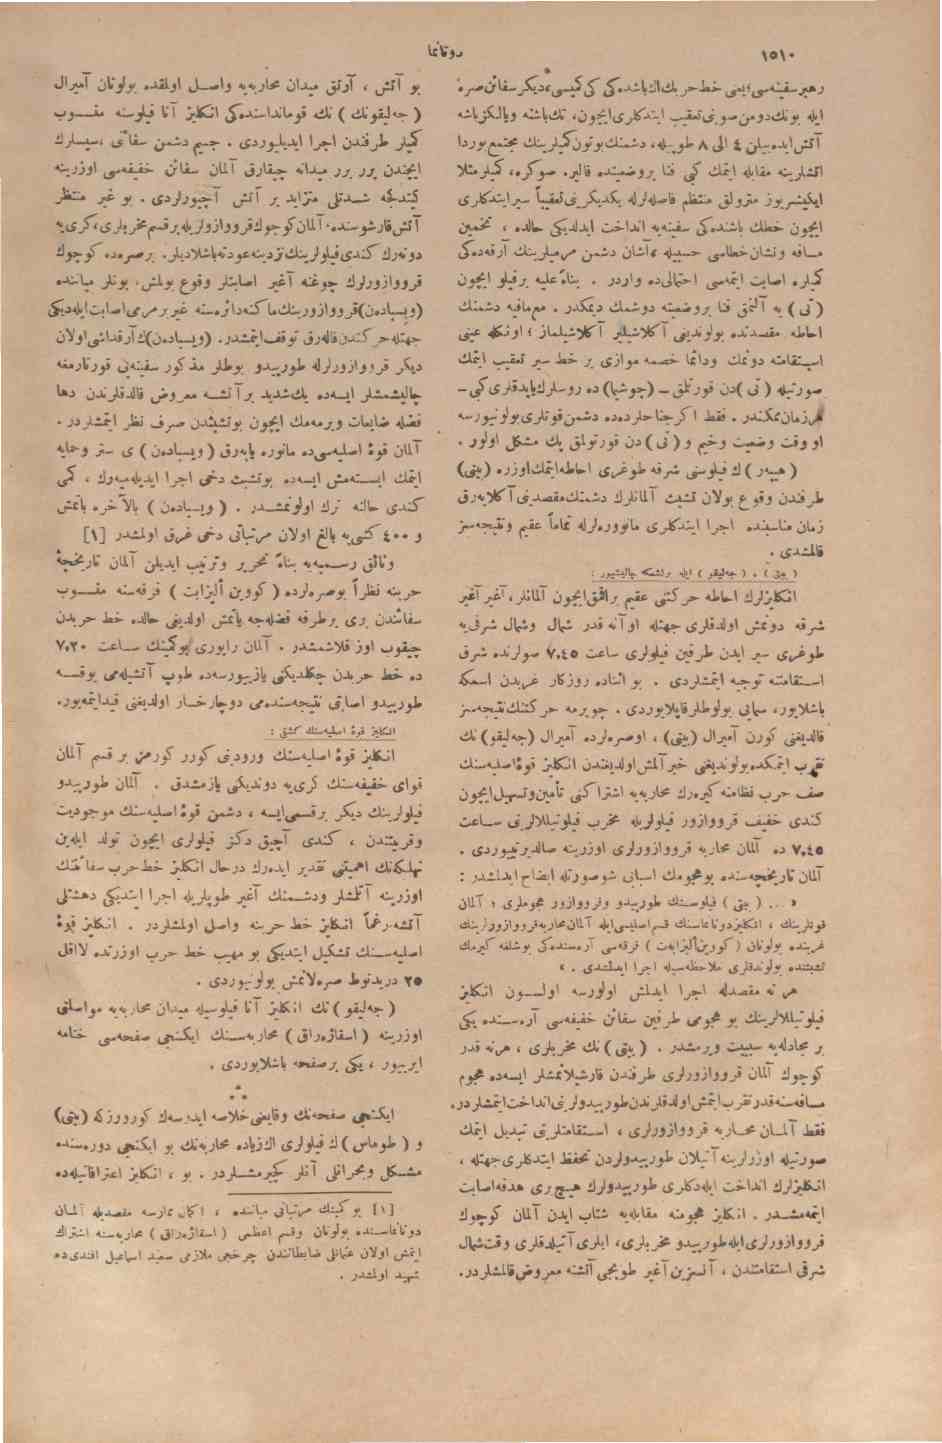 ١٥١٠
دوناتما
رهبر سفینه‌سی؛ یعنی خط حربك اك باشنده‌كی كمیسی، دیكر سفائن صره
ایله بونك دومن صوینی تعقیب ایتدكلری ایچون، تك باشنه ویالكزباشه
آتش ایده‌بیلن ٤ الی ٨ طوپیله، دشمنك بوتون كمیلرینك مجتمع بوردا
آتشلرینه مقابله ایتمك كبی فنا بر وضعیتده قالیر. صوكره، كمیلر مثلا
ایكیشر یوز مترولق منتظم فاصله‌لرله یكدیكرینی تعقیباً سیر ایتدكلری
ایچون خطك باشنده‌كی سفینه‌یه انداخت ایدلدیكی حالده ، تخمین
مسافه ونشان خطاسی حسبیله ، آشان دشمن مرمیلرینك آرقه‌ده‌كی
كمیلره اصابت ایتمه‌سی احتمالی‌ده واردر . بناءً علیه بر فیلو ایچون
(تی) یه آلنمق فنا بر وضعیته دوشمك دیمكدر . مع‌مافیه دشمنك
احاطه مقصدنده بولوندیغی آكلاشیلیر آكلاشیلماز ؛ اونكله عینی
استقامته دونمك ودائما خصمه موازی بر خط سیر تعقیب ایتمك
صورتیله (تی) دن قورتلمق – (چوشیما) ده روسلرك یاپدقلری كبی –
هر زمان ممكندر . فقط اكر جناحلرده‌ده دشمن قوتلری بولونیورسه
او وقت وضعیت وخیم و (تی) دن قورتولمق پك مشكل اولور .
(هیپه‌ر) ك فیلوسنی شرقه طوغری احاطه ایتمك اوزره (بیتی)
طرفندن وقوع بولان تشبث آلمانلرك دشمنك مقصدینی آكلایه‌رق
زمان مناسبنده اجرا ایتدكلری مانووره‌لرله تماماً عقیم ونتیجه‌سز
قالمشدی .
( بیتی ) ، ( جه‌لیقو ) ایله برلشمكه چالیشیور :
انكلیزلرك احاطه حركتنی عقیم براقمق ایچون آلمانلر، آغیر آغیر
شرقه دونمش اولدقلری جهتله اوآنه قدر شمال وشمال شرقی‌یه
طوغری سیر ایدن طرفین فیلولری ساعت ٧،٤٥ صولرنده شرق
استقامتنه توجیه ایتمشلردی . بو اثناده روزكار غربدن اسمكه
باشلایور، سمایی بولوطلر قاپلایوردی . چویرمه حركتنك نتیجه‌سز
قالدیغنی كورن آمیرال (بیتی) ، اوصره‌لرده آمیرال (جه‌لیقو) نك
تقرب ایتمكده بولوندیغنی خبر آلمش اولدیغندن انكلیز قوهٔ اصلیه‌سنك
صف حرب نظامنه كیره‌رك محاربه‌یه اشتراكنی تأمین وتسهیل ایچون
كندی خفیف قرووازور فیلولریله مخرب فیلوتیللالرینی ساعت
٧،٤٥ ده آلمان محاربه قرووازورلری اوزرینه صالدیرتییوردی .
آلمان تاریخچه‌سنده بو هجومك اسبابی شو صورتله ایضاح ایدلمشدر :
« ... ( بیتی ) فیلوسنك طورپیدو وقرووازور هجوملری ؛ آلمان
قوتلرینك ، انكلیز دونانماسنك قسم اصلیسی ایله آلمان محاربه قرووازورلرینك
غربنده بولونان (كووین ألیزابت) فرقه‌سی آره‌سنده‌كی بوشلغه كیرمك
تشبثنده بولوندقلری ملاحظه‌سیله اجرا ایدلمشدی . »
هر نه مقصدله اجرا ایدلمش اولورسه اولسون انكلیز
فیلوتیللالرینك بو هجومی طرفین سفائن خفیفه‌سی آره‌سنده یكی
بر مجادله‌یه سببیت ویرمشدر . ( بیتی ) نك مخربلری ، هرنه قدر
كوچوك آلمان قرووازورلری طرفندن قارشیلانمشلر ایسه‌ده هجوم
مسافه‌سنه قدر تقرب ایتمش اولدقلرندن طورپیدولرینی انداخت ایتمشلردر.
فقط آلمان محاربه قرووازورلری ، استقامتلرینی تبدیل ایتمك
صورتیله اوزرلرینه آتیلان طورپیدولردن تحفظ ایتدكلری جهتله ،
انكلیزلرك انداخت ایله‌دكلری طورپیدولرك هیچ بری هدفه اصابت
ایتمه‌مشدر . انكلیز هجومنه مقابله‌یه شتاب ایدن آلمان كوچوك
قرووازورلری ایله طورپیدو مخربلری ، ایلری آتیلدقلری وقت شمال
شرقی استقامتندن ، آنسزین آغیر طوپجی آتشنه معروض قالمشلردر.
بو آتش ، آرتق میدان محاربه‌یه واصل اولمقده بولونان آمیرال
( جه‌لیقونك ) نك قومانداسنده‌كی انكلیز آنا فیلوسنه منسوب
كمیلر طرفندن اجرا ایدیلیوردی . جسیم دشمن سفائنی ، سیسلرك
ایچندن برر برر میدانه چیقارق آلمان سفائن خفیفه‌سی اوزرینه
كیتدكجه شدتلی متزاید بر آتش آچیورلردی . بو غیر منتظر
آتش قارشوسنده ، آلمان كوچوك قرووازورلریله بر قسم مخربلری ، كری‌یه
دونه‌رك كندی فیلولرینك نزدینه عودته باشلادیلر . برصره‌ده كوچوك
قرووازورلرك چوغنه آغیر اصابتلر وقوع بولمش ، بونلر میاننده
(ویسبادەن) قرووازورینك ماكنه دائره‌سنه غیر بر مرمی اصابت ایله‌دیكی
جهتله حركتدن قاله‌رق توقف ایتمشدر . (ویسبادەن) ك آرقداشی اولان
دیكر قرووازورلرله طورپیدو بوطلر مذكور سفینه‌یی قورتارمغه
چالیشمشلر ایسه‌ده پك شدید بر آتشه معروض قالدقلرندن دها
فضله ضایعات ویرمه‌مك ایچون بو تشبثدن صرف نظر ایتمشلردر .
آلمان قوهٔ اصلیه‌سی‌ده مانوره یاپه‌رق (ویسبادەن) ی ستر وحمایه
ایتمك ایسته‌مش ایسه‌ده بو تشبث دخی اجرا ایدیله‌میه‌رك ، كمی
كندی حالنه ترك اولونمشدر . ( ویسبادەن ) بالآخره باتمش
و ٤٠٠ كشی‌یه بالغ اولان مرتباتی دخی غرق اولمشدر [١]
وثائق رسمیه‌یه بناءً تحریر وترتیب ایدیلن آلمان تاریخچهٔ
حربنه نظراً بوصره‌لرده ( كووین ألیزابت ) فرقه‌سنه منسوب
سفائندن بری برطرفه فضله‌جه یاتمش اولدیغی حالده خط حربدن
چیقوب اوزاقلاشمشدر . آلمان راپوری بو كمینك ساعت ٧،٢٠
ده خط حربدن چكلدیكنی یازییورسه‌ده طوپ آتشیله‌می یوقسه
طورپیدو اصابتی نتیجه‌سنده‌می دوچار خسار اولدیغنی قید ایتمه‌یور.
انكلیز قوهٔ اصلیه‌سنك كشفی :
انكلیز قوهٔ اصلیه‌سنك ورودینی كورر كورمز بر قسم آلمان
قوای خفیفه‌سنك كری‌یه دوندیكنی یازمشدق . آلمان طورپیدو
فیلولرینك دیكر بر قسمی ایسه ، دشمن قوهٔ اصلیه‌سنك موجودیت
وقربیتندن ، كندی آچیق دكز فیلولری ایچون تولد ایله‌ین
تهلكه‌نك اهمیتنی تقدیر ایده‌رك درحال انكلیز خط حرب سفائننك
اوزرینه آتلمشلر ودشمنك آغیر طوپلریله اجرا ایتدیكی دهشتلی
آتشه رغماً انكلیز خط حربنه واصل اولمشلردر . انكلیز قوهٔ
اصلیه‌سنك تشكیل ایتدیكی بو مهیب خط حرب اوزرنده لااقل
٢٥ دریدنوط صره‌لانمش بولونیوردی .
(جه‌لیقو) نك انكلیز آنا فیلوسیله میدان محاربه‌یه مواصلتی
اوزرینه (اسقاژەراق) محاربه‌سنك ایكنجی صفحه‌سی ختامه
ایریور ، یكی برصفحه باشلایوردی .
⁂
ایكنجی صفحه‌نك وقایعنی خلاصه ایدرسه‌ك كورورزكه (بیتی)
و ( طوماس) ك فیلولری اك زیاده محاربه‌نك بو ایكنجی دوره‌سنده
مشكل وبحرانلی آنلر كچیرمشلردر . بو ، انكلیز اعترافاتیله‌ده
[١] بو كمینك مرتباتی میاننده ، اكمال ممارسه مقصدیله آلمان
دونانماسنده بولونان وقسم اعظمی ( اسقاژەراق ) محاربه‌سنه اشتراك
ایتمش اولان عثمانلی ضابطانندن چرخجی ملازمی سعید اسماعیل افندی‌ده
شهید اولمشدر .